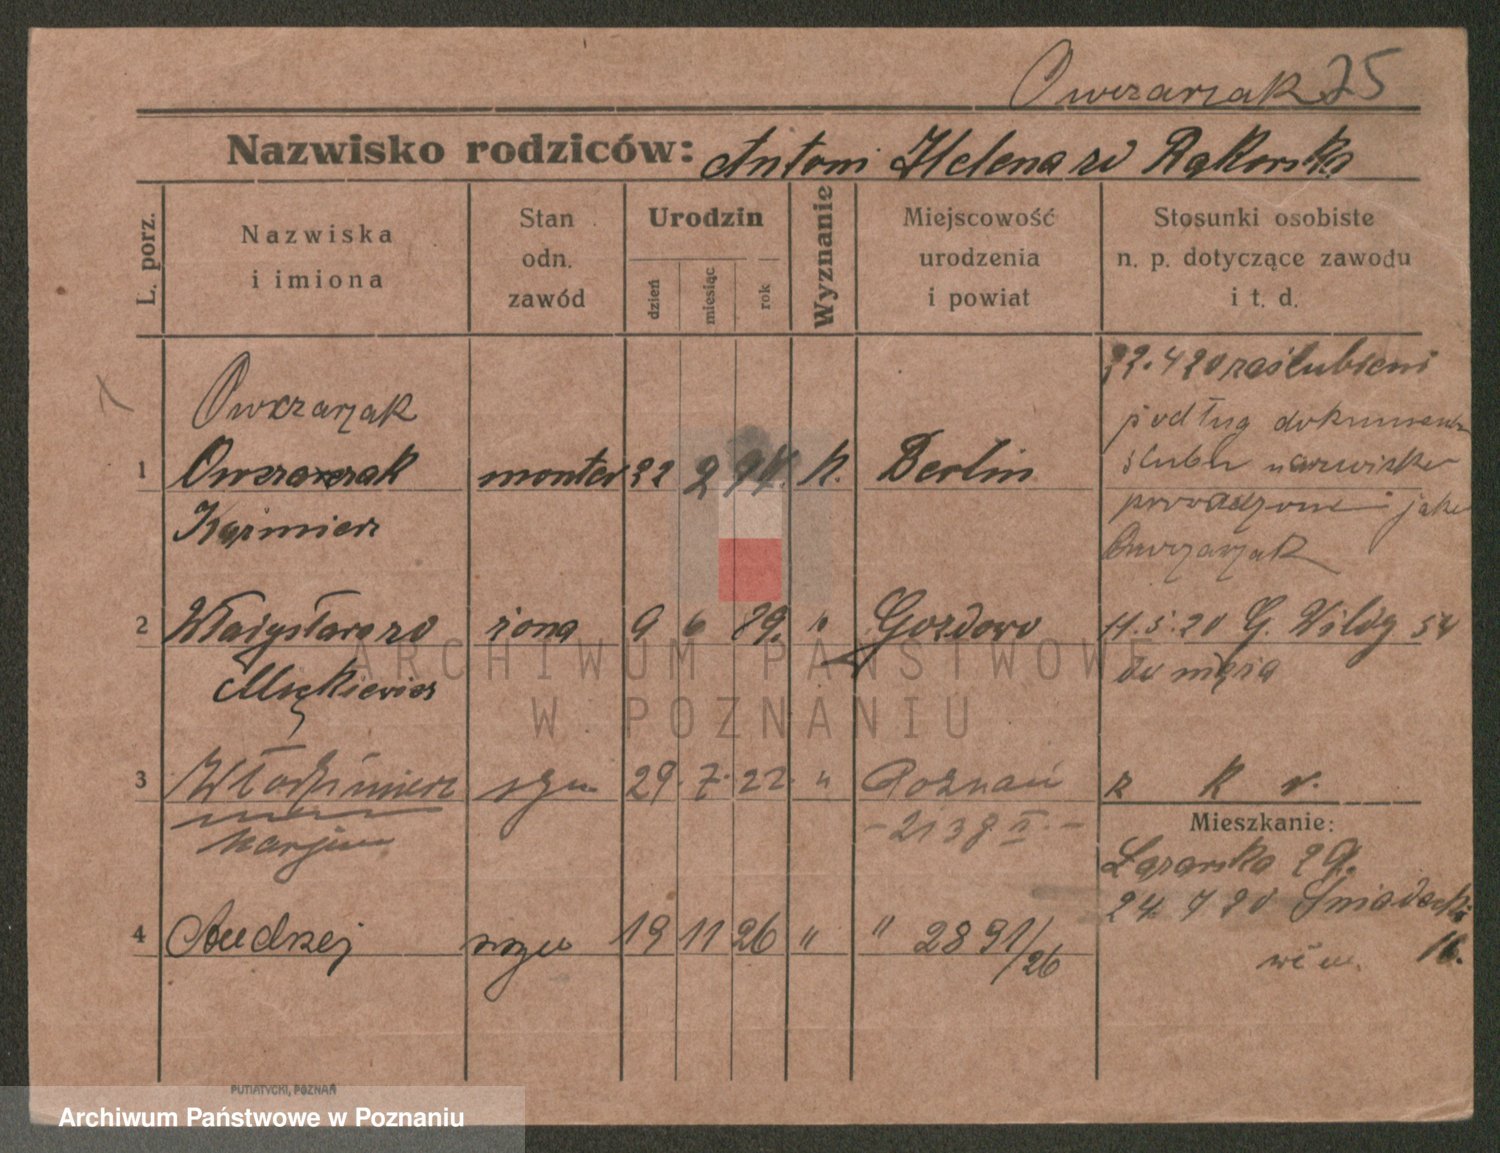 Owczarzak 25
Nazwisko rodziców: Antoni Helena zd Rąkowska
L. porz.
Nazwiska
i imiona
Stan
odn.
zawód
Urodzin
dzień
miesiąc
rok
Wyznanie
Miejscowość
urodzenia
i powiat
Stosunki osobiste
n. p. dotyczące zawodu
i t. d.
Owczarzak
1 Owczarzak monter 22 2 94. k. Berlin
Kaźmierz
22.4 20 zaślubieni
podług
ślubu nazwisko
jako
Owczarzak
2 Władysława zd żona 9 6 89. " Gozdowo 11.5.20 G. Wilda 54
do męża
3 Włodzimierz syn 29. 7. 22. " Poznań
Marjan - 2138 II. -
Mieszkanie:
Łazarska 29.
24. 7 20 Śniadeckich
16.
4 Andrzej syn 19 11 26 " " 2891/26
PUTIATYCKI, POZNAŃ
ARCHIWUM PAŃSTWOWE
W POZNANIU
Archiwum Państwowe w Poznaniu